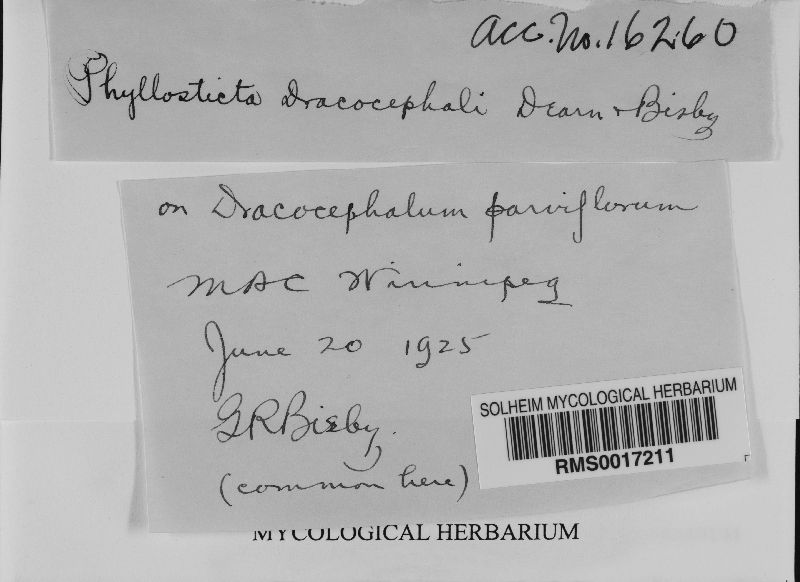 Acc. No. 16260
Phyllosticta Dracocephali Dearn & Bisby
on Dracocephalum parviflorum
MAC Winnipeg
June 20 1925
GRBisby.
(common here)
SOLHEIM MYCOLOGICAL HERBARIUM
RMS0017211
MYCOLOGICAL HERBARIUM